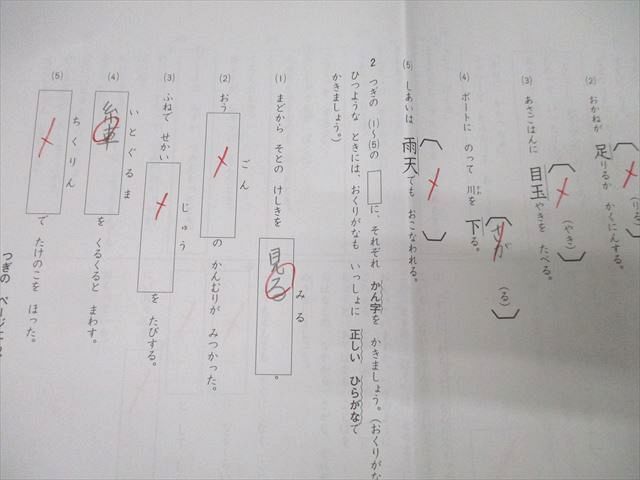 (2) おかねが 足りるか かくにんする。
(りる)
(3) あさごはんに 目玉やきを たべる。
(やき)
(4) ボートに のって 川を 下る。
(る)
(5) しあいは 雨天でも おこなわれる。
2 つぎの (1)〜(5)の に、それぞれ かん字を かきましょう。(おくりがな
ひつような ときには、おくりがなも いっしょに 正しい ひらがなで
かきましょう。)
(1) まどから そとの けしきを 見る。
みる
(2) おうごんの かんむりが みつかった。
(3) ふねで せかいじゅうを たびする。
(4) 糸車を くるくると まわす。
いとぐるま
(5) ちくりんで たけのこを ほった。
つぎの ページ